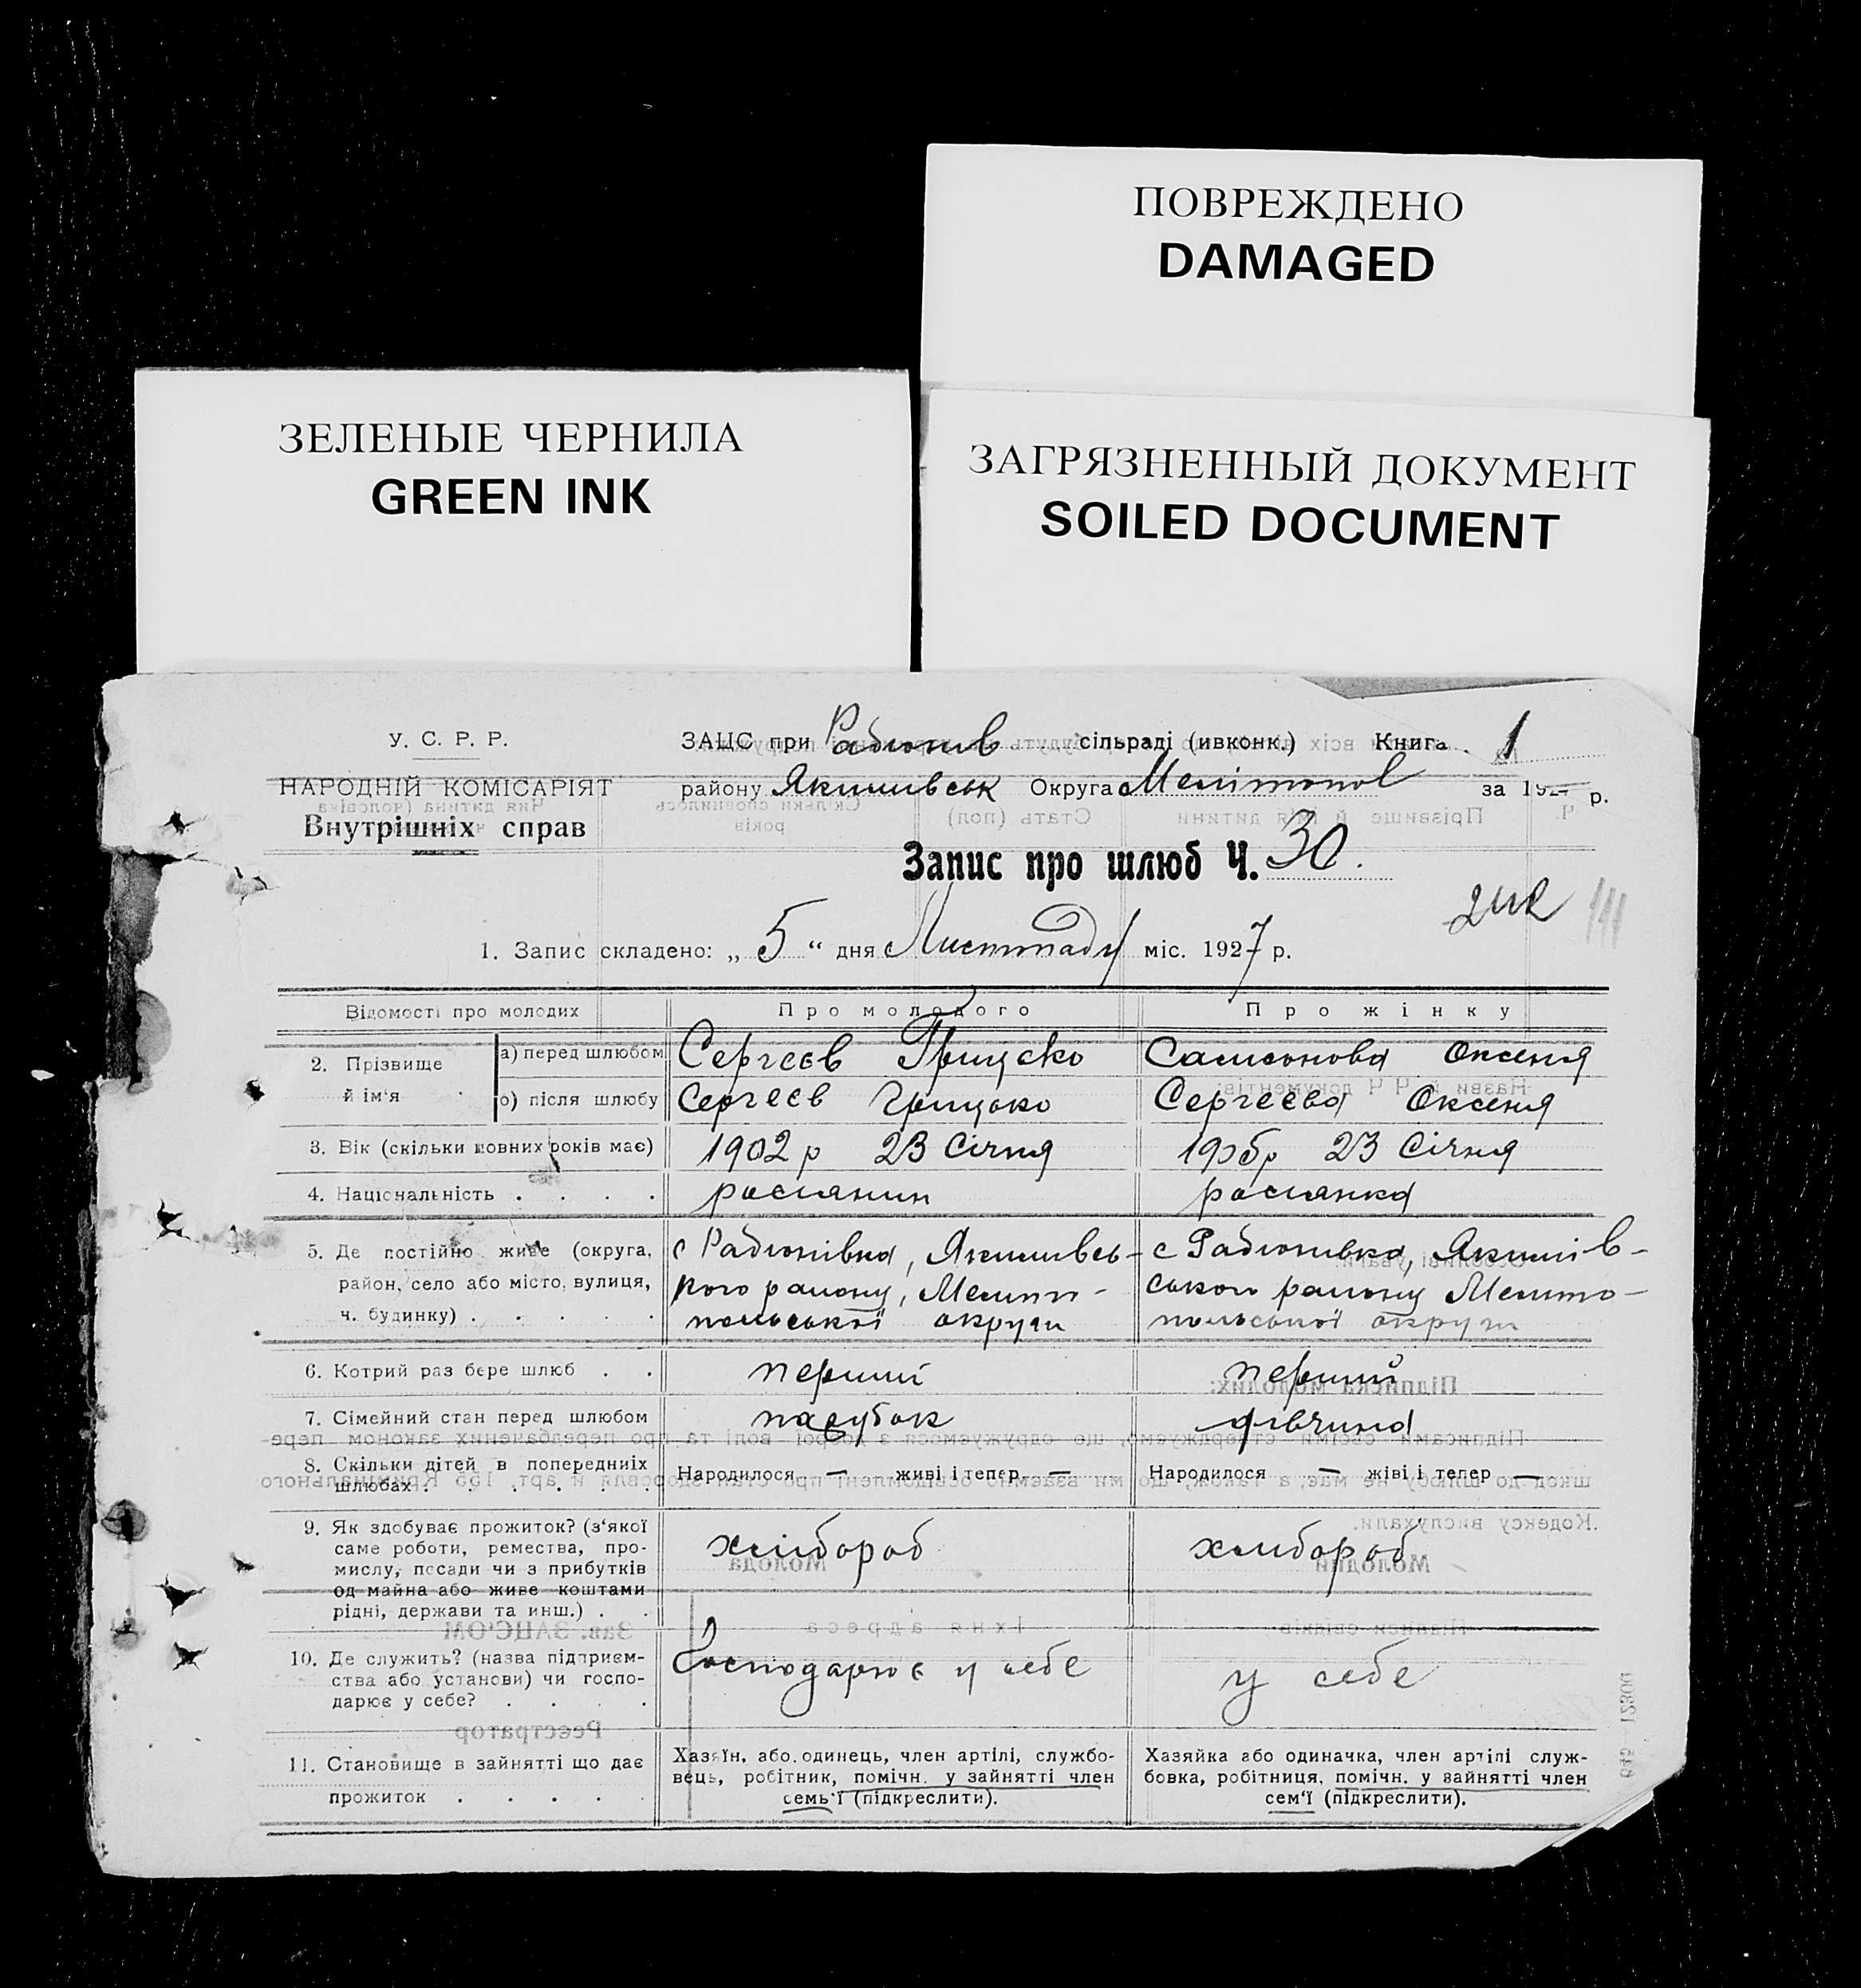 ПОВРЕЖДЕНО
DAMAGED
ЗЕЛЕНЫЕ ЧЕРНИЛА
GREEN INK
ЗАГРЯЗНЕННЫЙ ДОКУМЕНТ
SOILED DOCUMENT
У. С. Р. Р.
НАРОДНІЙ КОМІСАРІЯТ
Внутрішніх справ
ЗАЦС при Радионів сільраді (ивконк.) Книга 1
району Якимівськ Округа Мелітопол за 1927 р.
Запис про шлюб Ч. 30.
1. Запис складено: „ 5 “ дня Листопаду міс. 1927 р.
Відомості про молодих Про молодого Про жінку
2. Прізвище й ім'я а) перед шлюбом Сергєєв Грицько Самсонова Оксеня
о) після шлюбу Сергєєв Грицько Сергєєва Оксеня
3. Вік (скільки повних років має) 1902 р 23 Січня 1906р 23 Січня
4. Національність . . . . росиянин росиянка
5. Де постійно живе (округа, с Радионівка, Якимівсь- с Радионивка, Якимів-
район, село або місто, вулиця, кого району, Мелито- ського району Мелито-
ч. будинку) . . . . . польської округи польської округи
6. Котрий раз бере шлюб . . перший перший
7. Сімейний стан перед шлюбом парубок дівчина
8. Скільки дітей в попередниіх Народилося — живі і тепер — Народилося — жіві і тепер —
шлюбах . . . . . .
9. Як здобуває прожиток? (з‘якої
саме роботи, ремества, про- хлібороб хлибороб
мислу, посади чи з прибутків
од майна або живе коштами
рідні, держави та инш.) . .
10. Де служить? (назва підприєм- Господарює у себе у себе
ства або установи) чи госпо-
дарює у себе? . . . .
11. Становище в зайнятті що дає
прожиток . . . . .
Хазяїн, або одинець, член артілі, службо-
вець, робітник, помічн. у зайнятті член
семь‘ї (підкреслити).
Хазяйка або одиначка, член артілі служ-
бовка, робітниця, помічн. у зайнятті член
сем‘ї (підкреслити).